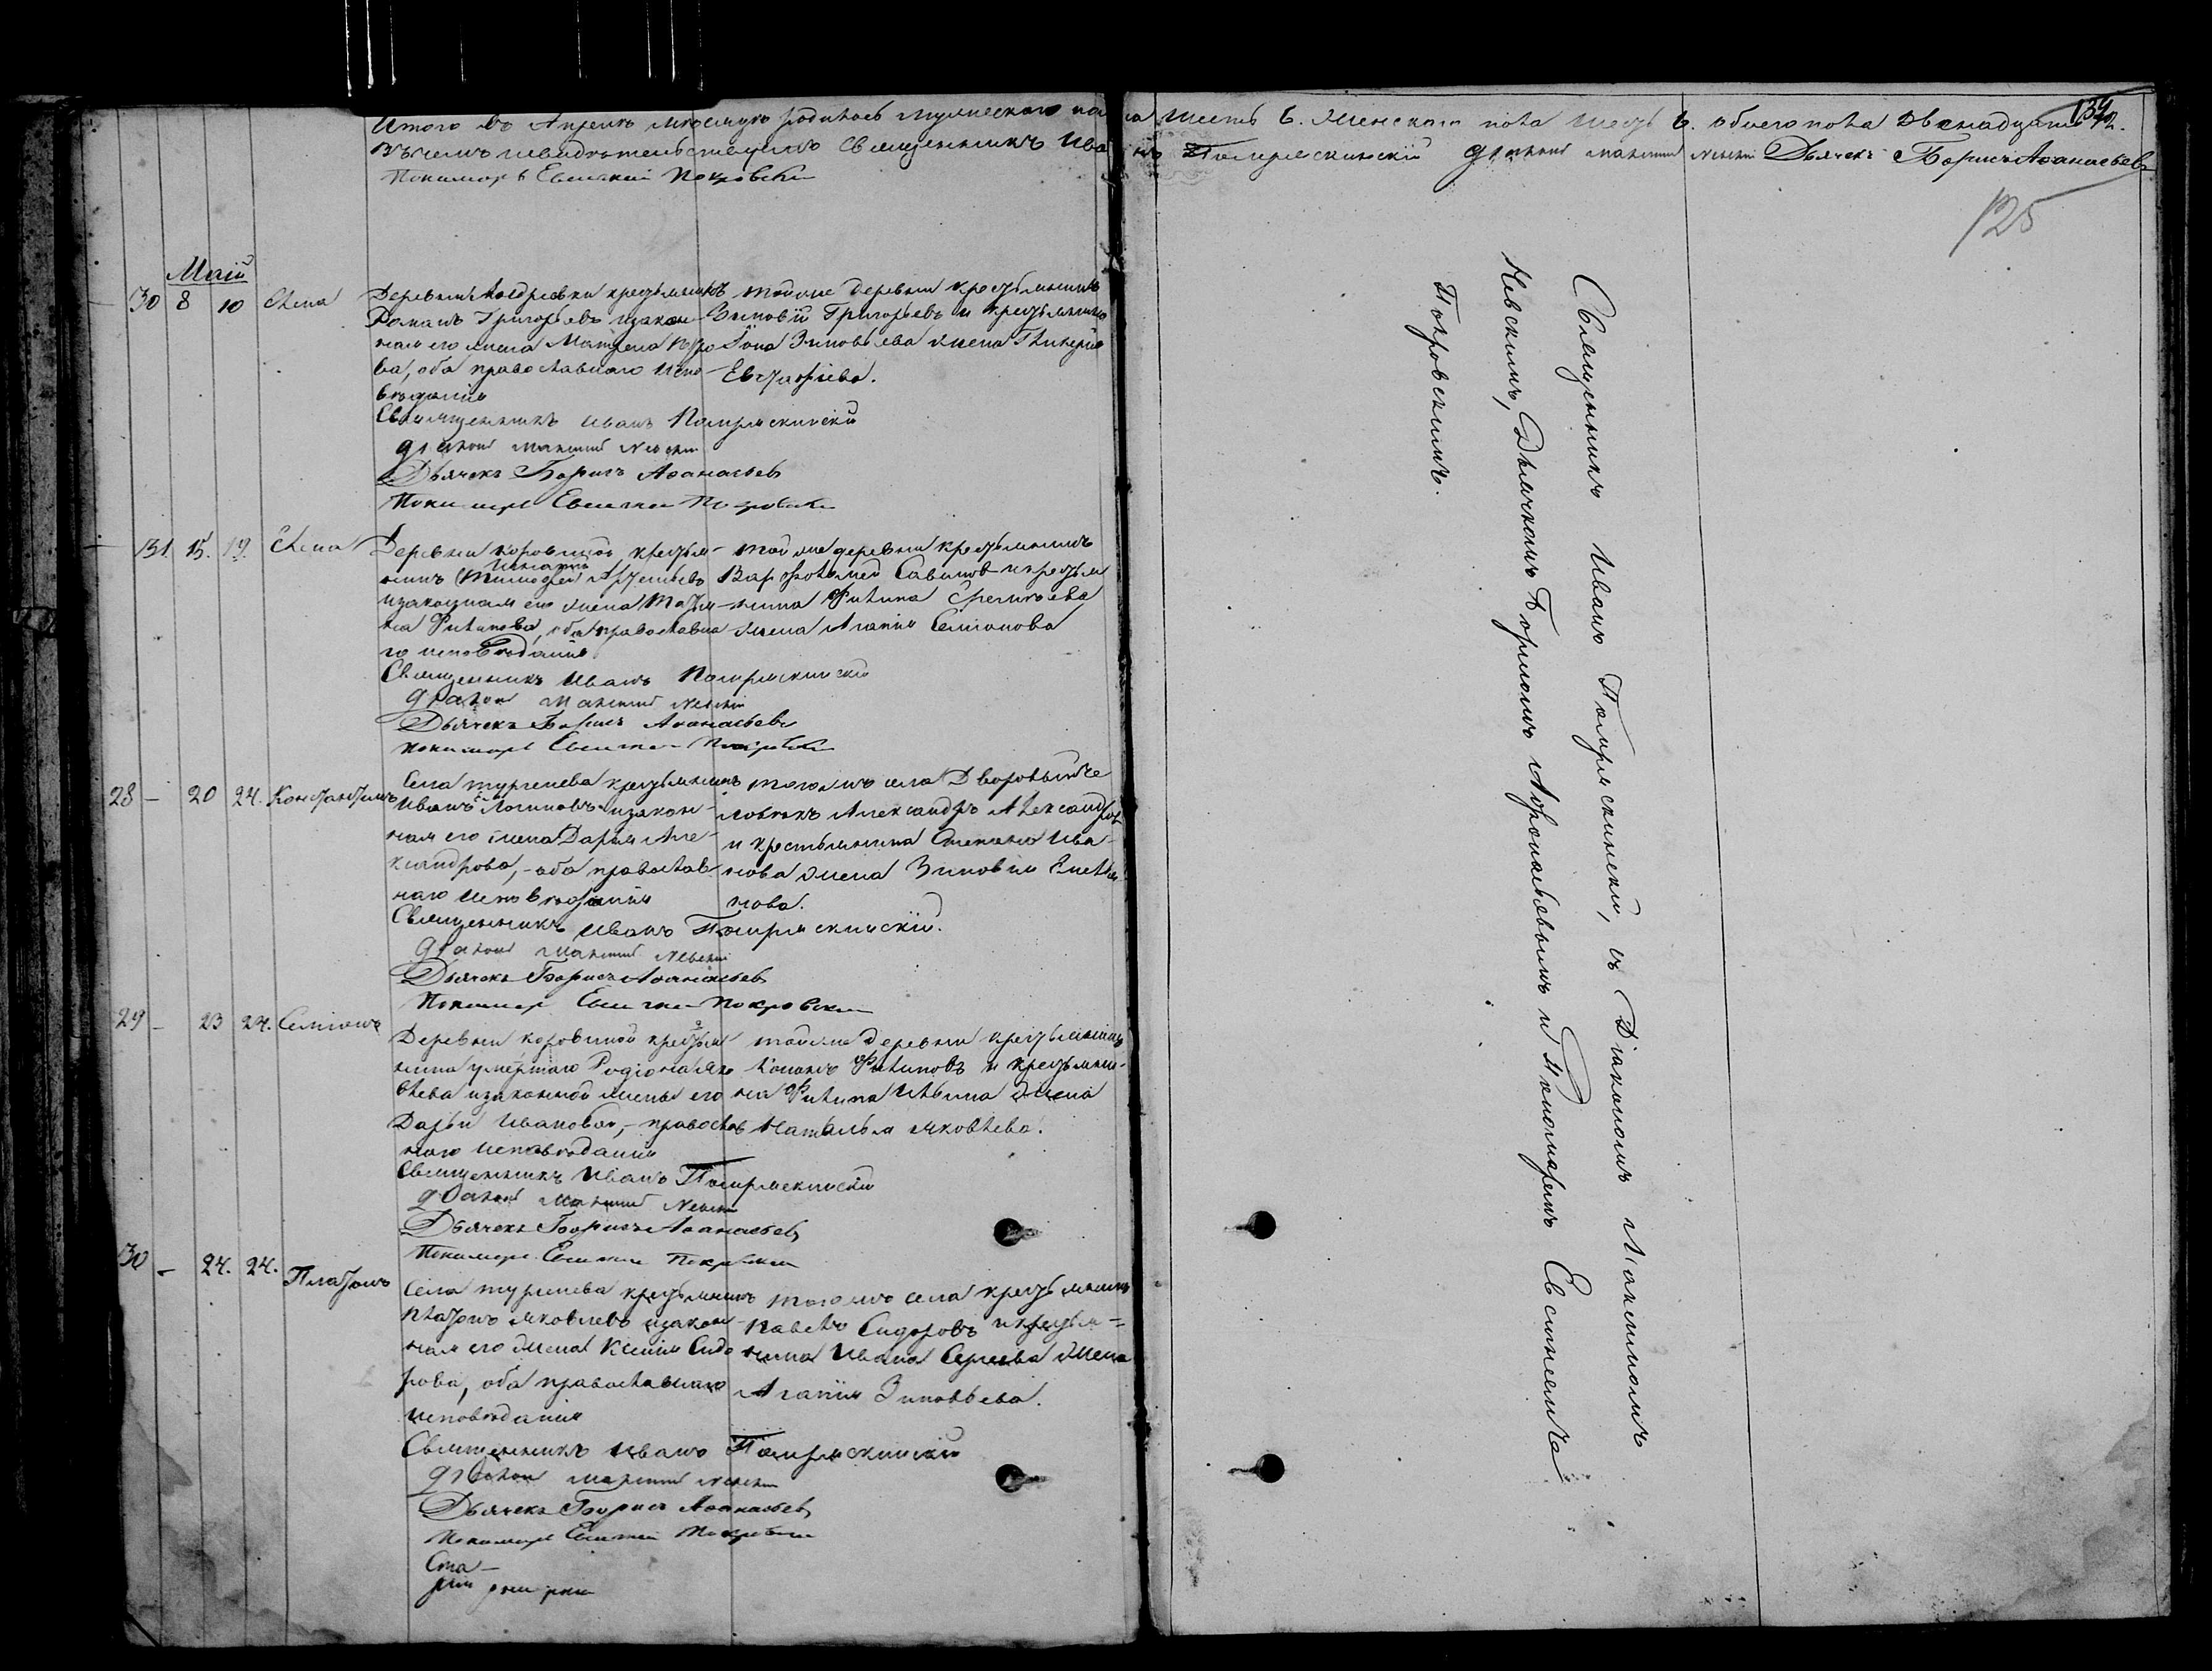 Итого въ Апрелѣ мѣсяцѣ родилось мужескаго пола шесть 6. женскаго пола шесть 6. обоего пола двенадцать 12.
Въ чемъ свидѣтельствуемъ Священникъ Иванъ Діаконъ Максимъ Невскій Дьячекъ Борисъ Аѳанасьевъ
Пономарь Евсигней Покровскій
134
125
Маій
30 8 10 Елена
Деревни Андреевки крестьянинъ
Романъ Григорьевъ изакон-
ная его жена Матрена Пр
ва, оба православнаго испо-
вѣданія
тойже деревни крестьянинъ
Зиновій Григорьевъ и крестьянина
Іона Зиновьева жена Гликерія
Евстафіева.
Священникъ Иванъ
Діаконъ Максимъ Невскій
Дьячекъ Борисъ Аѳанасьевъ
Пономарь Евсигней Покровскій
31. 15. 19. Елена
Деревни Коровиной крестья-
нинъ Артемьевъ
изаконная его жена Татья-
на Филипова, оба православна
го исповѣданія
той же деревни крестьянинъ
Варфоломей Савиновъ и крестья
нина Филипа Еремѣева
жена Агапія Семіонова
Священникъ Иванъ
Діаконъ Максимъ Невскій
Дьячекъ Борисъ Аѳанасьевъ
Пономарь Евсигней Покровскій
28 – 20 24. Константинъ
Села Тургенева крестьянинъ
Иванъ Логиновъ изакон-
ная его жена Дарья Але-
ксандрова, – оба православ-
наго исповѣданія
тогожъ села Дворовый че
ловѣкъ Александръ Александровъ
и крестьянина Степана Ива-
нова жена Зиновія Емелья
нова.
Священникъ Иванъ
Діаконъ Максимъ Невскій
Дьячекъ Борисъ Аѳанасьевъ
Пономарь Евсигней Покровскій
29 – 23 24. Семіонъ
Деревни Коровиной крестья
нина умершаго Родіона Яко
влева изаконной жены его
Дарьи Ивановой, – православ
наго исповѣданія
тойже деревни крестьянинъ
Кононъ Филиповъ и крестьяни-
на Филипа Ильина жена
Наталья Яковлева.
Священникъ Иванъ
Діаконъ Максимъ Невскій
Дьячекъ Борисъ Аѳанасьевъ
Пономарь Евсигней Покровскій
30 – 24. 24. Платонъ
Села Тургенева крестьянинъ
Платонъ Яковлевъ изакон-
ная его жена Ксенія Сидо
рова, оба православнаго
исповѣданія
тогожъ села крестьянинъ
Павелъ Сидоровъ и крестья=
нина Ивана Сергеева жена
Агапія Зиновьева.
Священникъ Иванъ
Діаконъ Максимъ Невскій
Дьячекъ Борисъ Аѳанасьевъ
Пономарь Евсигней Покровскій
Священникъ Иванъ съ Діакономъ Максимомъ
Невскимъ, Дьячкомъ Борисомъ Афонасьевымъ и Пономаремъ
Покровскимъ.